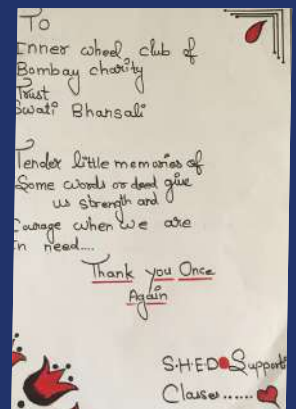 To
Inner wheel club of
Bombay charity
Trust
Swati Bhansali
Tender little memories of
Some words or deed give
us strength and
Courage when we are
In need....
Thank you Once
Again
S.H.E.D Support
Classes......